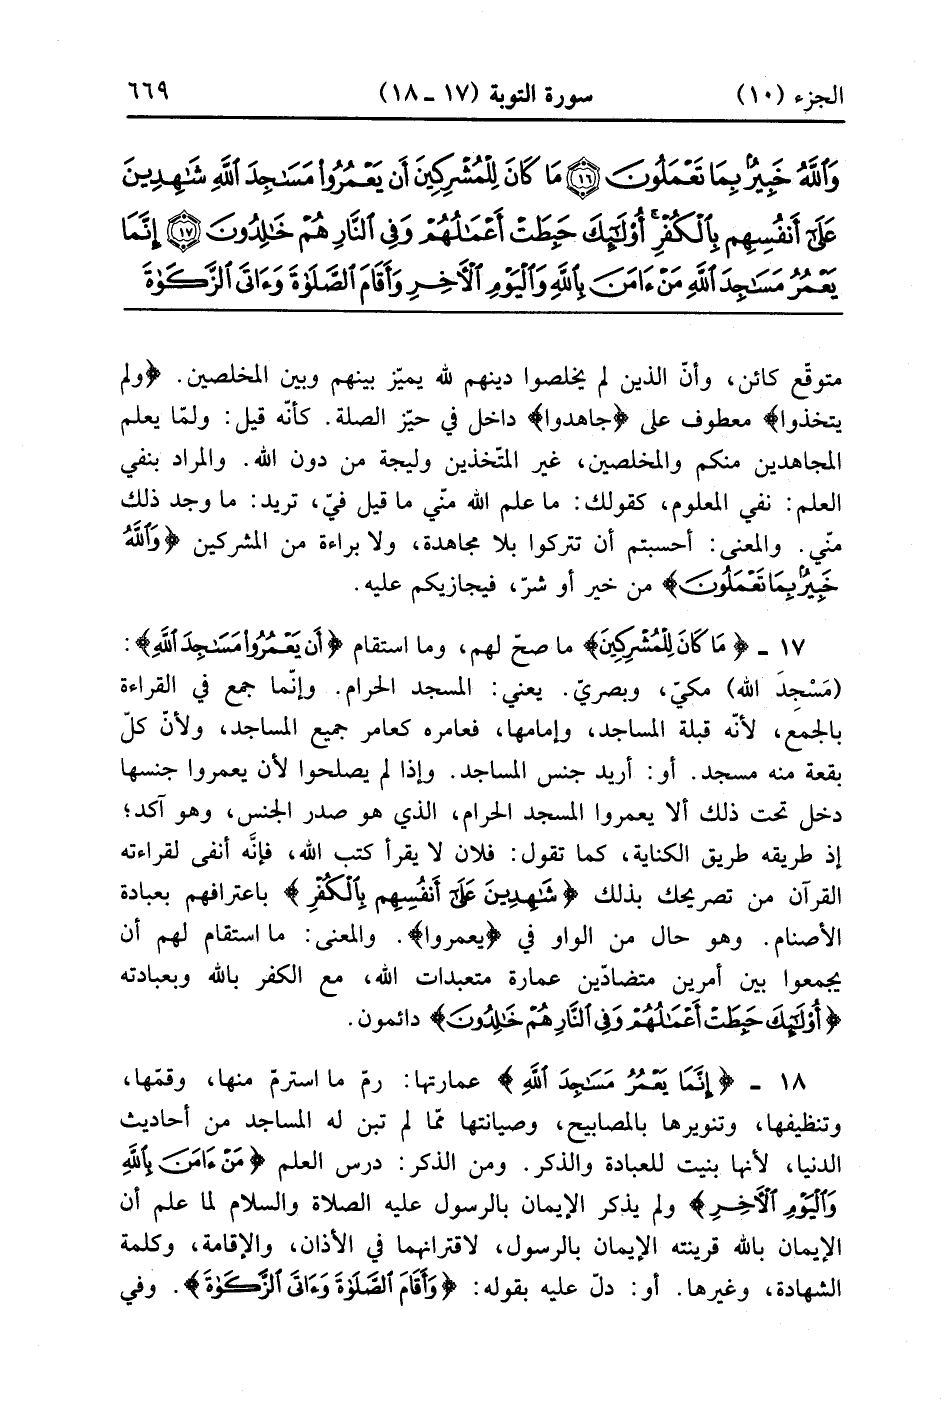 الجزء (١٠) سورة التوبة (١٧ ـ ١٨) ٦٦٩
وَٱللَّهُ خَبِيرٌۢ بِمَا تَعْمَلُونَ ١٦ مَا كَانَ لِلْمُشْرِكِينَ أَن يَعْمُرُوا۟ مَسَـٰجِدَ ٱللَّهِ شَـٰهِدِينَ
عَلَىٰٓ أَنفُسِهِم بِٱلْكُفْرِ ۚ أُو۟لَـٰٓئِكَ حَبِطَتْ أَعْمَـٰلُهُمْ وَفِى ٱلنَّارِ هُمْ خَـٰلِدُونَ ١٧ إِنَّمَا
يَعْمُرُ مَسَـٰجِدَ ٱللَّهِ مَنْ ءَامَنَ بِٱللَّهِ وَٱلْيَوْمِ ٱلْـَٔاخِرِ وَأَقَامَ ٱلصَّلَوٰةَ وَءَاتَى ٱلزَّكَوٰةَ
متوقّع كائن، وأنّ الذين لم يخلصوا دينهم لله يميّز بينهم وبين المخلصين. ﴿ولم
يتخذوا﴾ معطوف على ﴿جاهدوا﴾ داخل في حيّز الصلة. كأنّه قيل: ولمّا يعلم
المجاهدين منكم والمخلصين، غير المتّخذين وليجة من دون الله. والمراد بنفي
العلم: نفي المعلوم، كقولك: ما علم الله منّي ما قيل فيّ، تريد: ما وجد ذلك
منّي. والمعنى: أحسبتم أن تتركوا بلا مجاهدة، ولا براءة من المشركين ﴿وَٱللَّهُ
خَبِيرٌۢ بِمَا تَعْمَلُونَ﴾ من خير أو شرّ، فيجازيكم عليه.
١٧ ـ ﴿مَا كَانَ لِلْمُشْرِكِينَ﴾ ما صحّ لهم، وما استقام ﴿أَن يَعْمُرُوا۟ مَسَـٰجِدَ ٱللَّهِ﴾:
(مَسْجِدَ الله) مكيّ، وبصريّ. يعني: المسجد الحرام. وإنّما جمع في القراءة
بالجمع، لأنّه قبلة المساجد، وإمامها، فعامره كعامر جميع المساجد، ولأنّ كلّ
بقعة منه مسجد. أو: أريد جنس المساجد. وإذا لم يصلحوا لأن يعمروا جنسها
دخل تحت ذلك ألا يعمروا المسجد الحرام، الذي هو صدر الجنس، وهو آكد؛
إذ طريقه طريق الكناية، كما تقول: فلان لا يقرأ كتب الله، فإنَّه أنفى لقراءته
القرآن من تصريحك بذلك ﴿شَـٰهِدِينَ عَلَىٰٓ أَنفُسِهِم بِٱلْكُفْرِ﴾ باعترافهم بعبادة
الأصنام. وهو حال من الواو في ﴿يعمروا﴾. والمعنى: ما استقام لهم أن
يجمعوا بين أمرين متضادّين عمارة متعبدات الله، مع الكفر بالله وبعبادته
﴿أُو۟لَـٰٓئِكَ حَبِطَتْ أَعْمَـٰلُهُمْ وَفِى ٱلنَّارِ هُمْ خَـٰلِدُونَ﴾ دائمون.
١٨ ـ ﴿إِنَّمَا يَعْمُرُ مَسَـٰجِدَ ٱللَّهِ﴾ عمارتها: رمّ ما استرمّ منها، وقمّها،
وتنظيفها، وتنويرها بالمصابيح، وصيانتها ممّا لم تبن له المساجد من أحاديث
الدنيا، لأنها بنيت للعبادة والذكر. ومن الذكر: درس العلم ﴿مَنْ ءَامَنَ بِٱللَّهِ
وَٱلْيَوْمِ ٱلْـَٔاخِرِ﴾ ولم يذكر الإيمان بالرسول عليه الصلاة والسلام لما علم أن
الإيمان بالله قرينته الإيمان بالرسول، لاقترانهما في الأذان، والإقامة، وكلمة
الشهادة، وغيرها. أو: دلّ عليه بقوله: ﴿وَأَقَامَ ٱلصَّلَوٰةَ وَءَاتَى ٱلزَّكَوٰةَ﴾. وفي